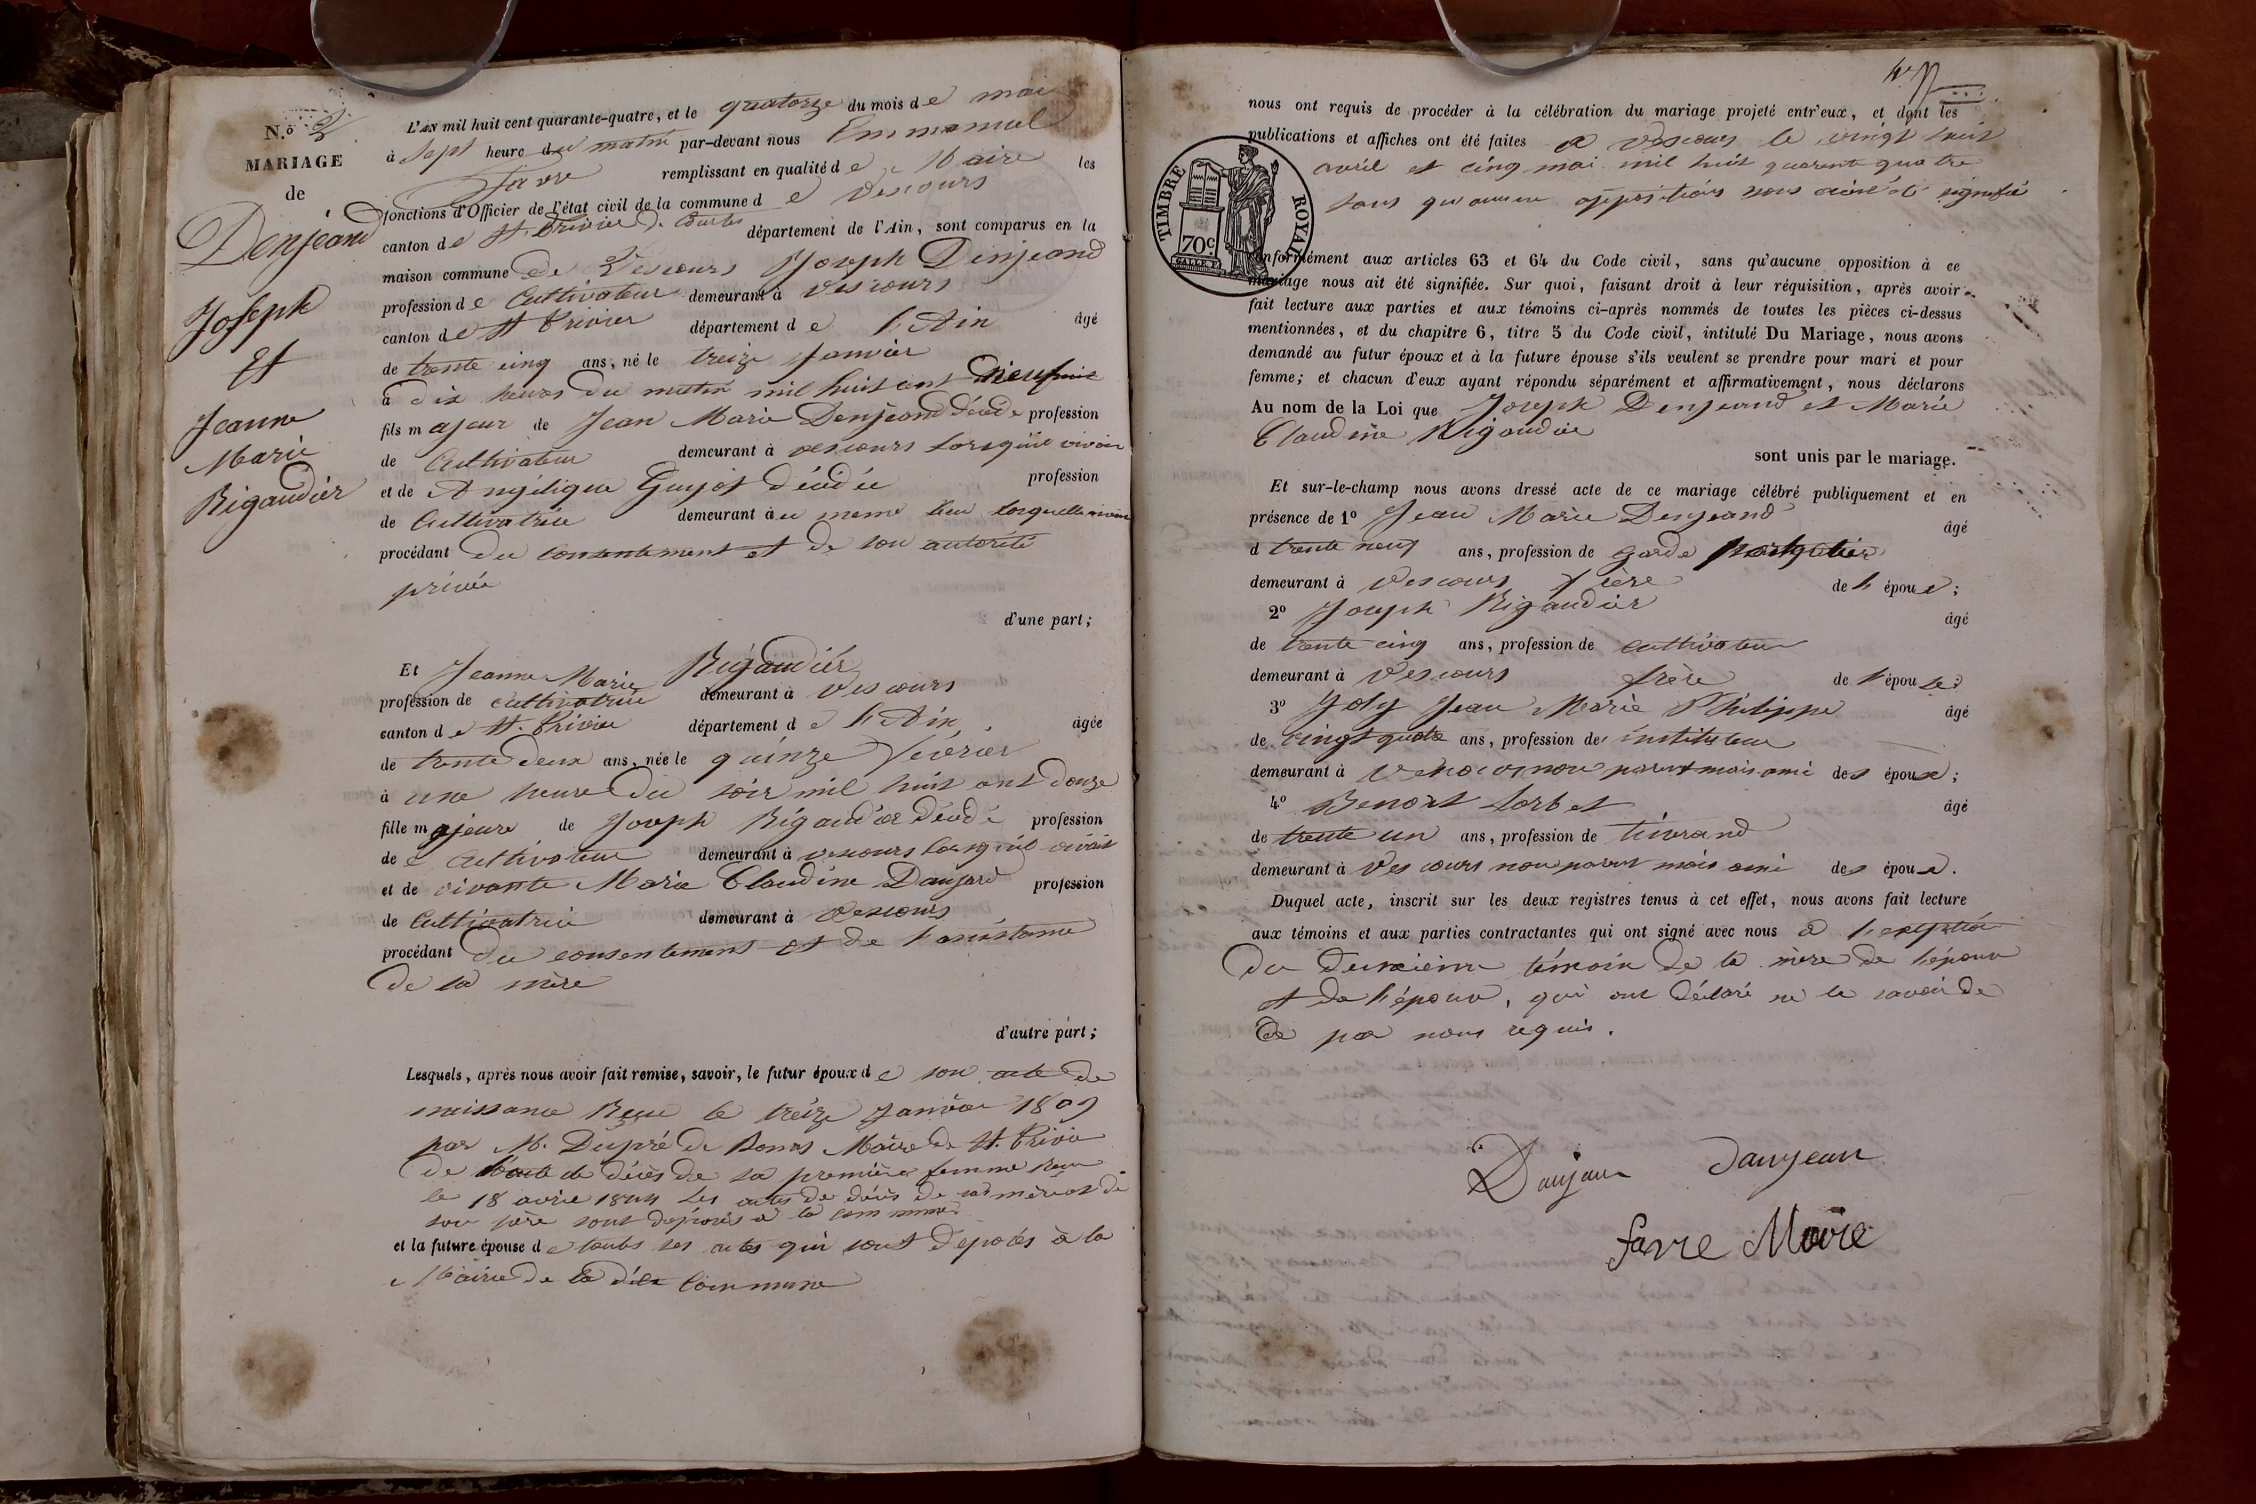 N.º 2
MARIAGE
de
Denjeand
Joseph
Et
Jeanne
Marie
Rigaudier
L'AN mil huit cent quarante-quatre, et le quatorze du mois de mai
à sept heure du matin par-devant nous Emmanuel
Favre remplissant en qualité de Maire les
fonctions d'Officier de l'état civil de la commune de Vescours
canton de St. Trivier de Courtes département de l'Ain, sont comparus en la
maison commune de Vescours Joseph Denjeand
profession de Cultivateur demeurant à Vescours
canton de St Trivier département de l'Ain âgé
de trente cinq ans, né le treize Janvier
à dix heures du matin mil huit cent neuf
fils majeur de Jean Marie Denjeand décédé profession
de Cultivateur demeurant à vescours lorsqu'il vivait
et de Angélique Guyot décédée profession
de Cultivatrice demeurant au meme lieu lorsquelle vivait
procédant du consentement et de son autorité
privée
d'une part;
Et Jeanne Marie Rigaudier
profession de cultivatrice demeurant à Vescours
canton de St. Trivier département de l'Ain âgée
de trente deux ans, née le quinze Février
à une heure du soir mil huit cent douze
fille majeure de Joseph Rigaudier décédé profession
de Cultivateur demeurant à vescours lorsqu'il vivait
et de vivante Marie Claudine Danjard profession
de Cultivatrice demeurant à Vescours
procédant du consentement et de l'assistance
de sa mère
d'autre part;
Lesquels, après nous avoir fait remise, savoir, le futur époux de son acte de
naissance Reçu le treize Janvier 1809
par M. Dupré de Maire de St. Trivier
de l'acte de décès de sa première femme reçu
le 18 avril 1844 Les actes de décès de sa mère et de
son père sont déposés à la commune
et la future épouse de toutes ses actes qui sont déposés à la
Mairie de la dite Commune
nous ont requis de procéder à la célébration du mariage projeté entr'eux, et dont les
publications et affiches ont été faites à Vescours le vingt huit
avril et cinq mai mil huit quarante quatre
sans qu'aucune oppositions nous ait été signifié
TIMBRE ROYAL
70c
conformément aux articles 63 et 64 du Code civil, sans qu'aucune opposition à ce
mariage nous ait été signifiée. Sur quoi, faisant droit à leur réquisition, après avoir
fait lecture aux parties et aux témoins ci-après nommés de toutes les pièces ci-dessus
mentionnées, et du chapitre 6, titre 5 du Code civil, intitulé Du Mariage, nous avons
demandé au futur époux et à la future épouse s'ils veulent se prendre pour mari et pour
femme; et chacun d'eux ayant répondu séparément et affirmativement, nous déclarons
Au nom de la Loi que Joseph Denjeand et Marie
Claudine Rigaudier
sont unis par le mariage.
Et sur-le-champ nous avons dressé acte de ce mariage célébré publiquement et en
présence de 1º Jean Marie Denjeand âgé
d trente neuf ans, profession de garde
demeurant à Vescours frère de l'époux;
2º Joseph Rigaudier âgé
de trente cinq ans, profession de cultivateur
demeurant à Vescours frère de l'épouse;
3º Joly Jean Marie Philippe âgé
de vingt quatre ans, profession de instituteur
demeurant à Vescours non parent mais ami des époux;
4º Benoit Sorbet âgé
de trente un ans, profession de tisserand
demeurant à Vescours non parent mais ami des époux.
Duquel acte, inscrit sur les deux registres tenus à cet effet, nous avons fait lecture
aux témoins et aux parties contractantes qui ont signé avec nous à l'exeption
du deuxième témoin de la mère de l'épouse
et de l'épouse, qui ont déclaré ne le savoir de
ce par nous requis.
Danjean danjean
favre Maire